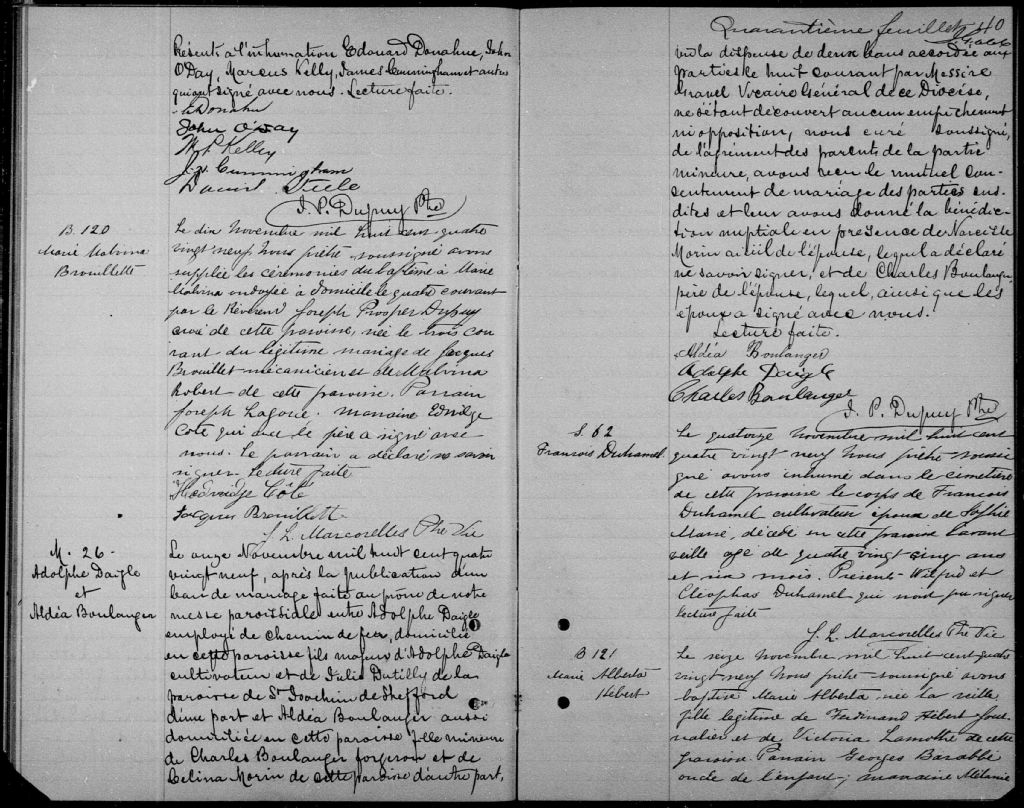 Présents à l'inhumation Edouard Donahue, John
O'Day, Marcus Kelly, James Cunningham et autres
qui ont signé avec nous. Lecture faite.
Donahu
John O'Day
Kelley
J. Cunningham
David Steele
J. P. Dupuy Ptre
B. 120
Marie Malvina
Brouillette
Le dix Novembre mil huit cent quatre
vingt neuf, Nous prêtre soussigné avons
supplée les cérémonies du baptême à Marie
Malvina ondoyée à domicile le quatre courant
par le Révérend Joseph Prosper Dupuy
curé de cette paroisse, née le trois cou
rant du légitime mariage de Jacques
Brouillet mécanicien et de Malvina
Robert de cette paroisse. Parrain
Joseph Lagorce. marraine Edwidge
Coté qui avec le père a signé avec
nous. Le parrain a déclaré ne savoir
signer. Lecture faite
Hedwidge Côté
Jacques Brouillett
J. L. Marcorelles Ptre Vic
M. 26 -
Adolphe Daigle
et
Aldéa Boulanger
Le onze Novembre mil huit cent quatre
vingt neuf, après la publication d'un
ban de mariage faite au prône de notre
messe paroissiale entre Adolphe Daigle
employé de chemin de fer, domicilié
en cette paroisse fils majeur d'Adolphe Daigle
cultivateur et de Julie Dutilly de la
paroisse de St Joachim de Shefford
d'une part et Aldéa Boulanger aussi
domiciliée en cette paroisse fille mineure
de Charles Boulanger forgeron et de
Celina Morin de cette paroisse d'autre part,
Quarantième feuillet 40
vu la dispense de deux bans accordée aux
parties le huit courant par Messire
Gravel Vicaire Général de ce Diocèse,
ne s'étant découvert aucun empêchement
ni opposition, nous curé soussigné,
de l'agrément des parents de la partie
mineure, avons reçu le mutuel con-
sentement de mariage des parties sus-
dites et leur avons donné la bénédic-
tion nuptiale en présence de Narcisse
Morin aïeul de l'épouse, lequel a déclaré
ne savoir signer, et de Charles Boulanger
père de l'épouse, lequel, ainsi que les
époux a signé avec nous.
Lecture faite.
Aldéa Boulanger
Adolphe Daigle
Charles Boulanger
J. P. Dupuy Ptre
S. 62
Francois Duhamel
Le quatorze Novembre mil huit cent
quatre vingt neuf Nous prêtre soussi
gné avons inhumé dans le cimetière
de cette paroisse le corps de Francois
Duhamel cultivateur époux de Sophie
décédé en cette paroisse l'avant
veille agé de quatre vingt cinq ans
et six mois. Présents Wilfrid et
Cléophas Duhamel qui n'ont pu signer
Lecture faite
J. L. Marcorelles Ptre Vic
B 121
Marie Alberta
Hebert
Le seize Novembre mil huit cent quatre
vingt neuf Nous prêtre soussigné avons
baptisé Marie Alberta, née la veille,
fille légitime de Ferdinand Hébert jour-
nalier et de Victoria Lamothe de cette
paroisse. Parrain Georges Barabbé
oncle de l'enfant; marraine Mélanie